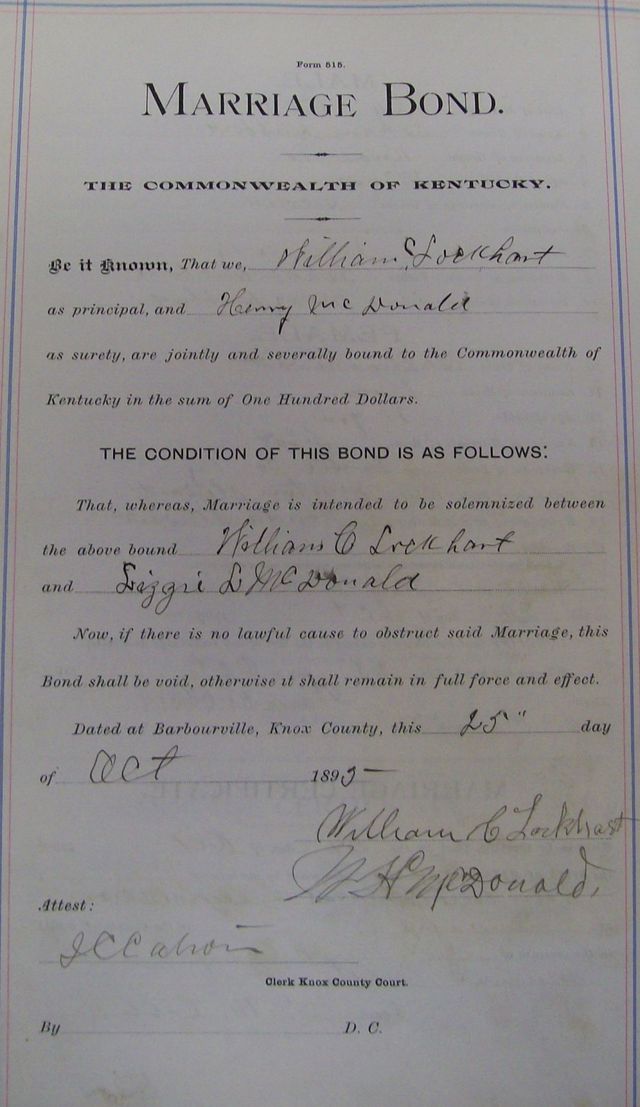 Form 515.
MARRIAGE BOND.
THE COMMONWEALTH OF KENTUCKY.
Be it Known, That we, William C Lockhart
as principal, and Henry McDonald
as surety, are jointly and severally bound to the Commonwealth of
Kentucky in the sum of One Hundred Dollars.
THE CONDITION OF THIS BOND IS AS FOLLOWS:
That, whereas, Marriage is intended to be solemnized between
the above bound William C Lockhart
and Lizzie L McDonald
Now, if there is no lawful cause to obstruct said Marriage, this
Bond shall be void, otherwise it shall remain in full force and effect.
Dated at Barbourville, Knox County, this 25" day
of Oct 1895
William C Lockhart
McDonald,
Attest:
Clerk Knox County Court.
By D. C.